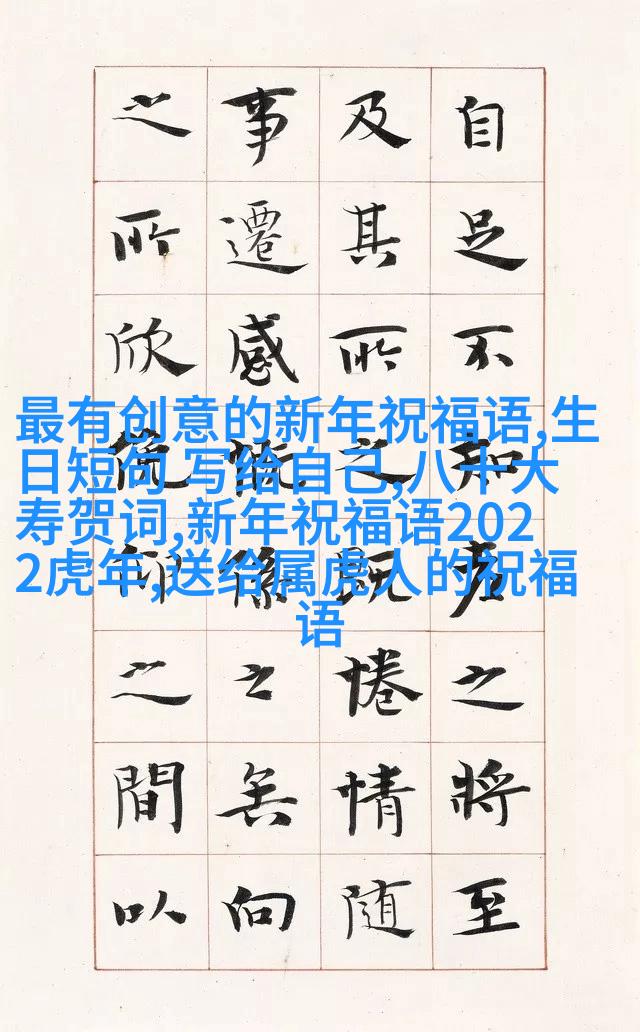 自足不知老之將至
及其所之既惓情隨
事遷感慨係之矣向
之所欣俛仰之間以
最有创意的新年祝福语,生
日短句 写给自己,八十大
寿贺词,新年祝福语202
2虎年,送给属虎人的祝福
语